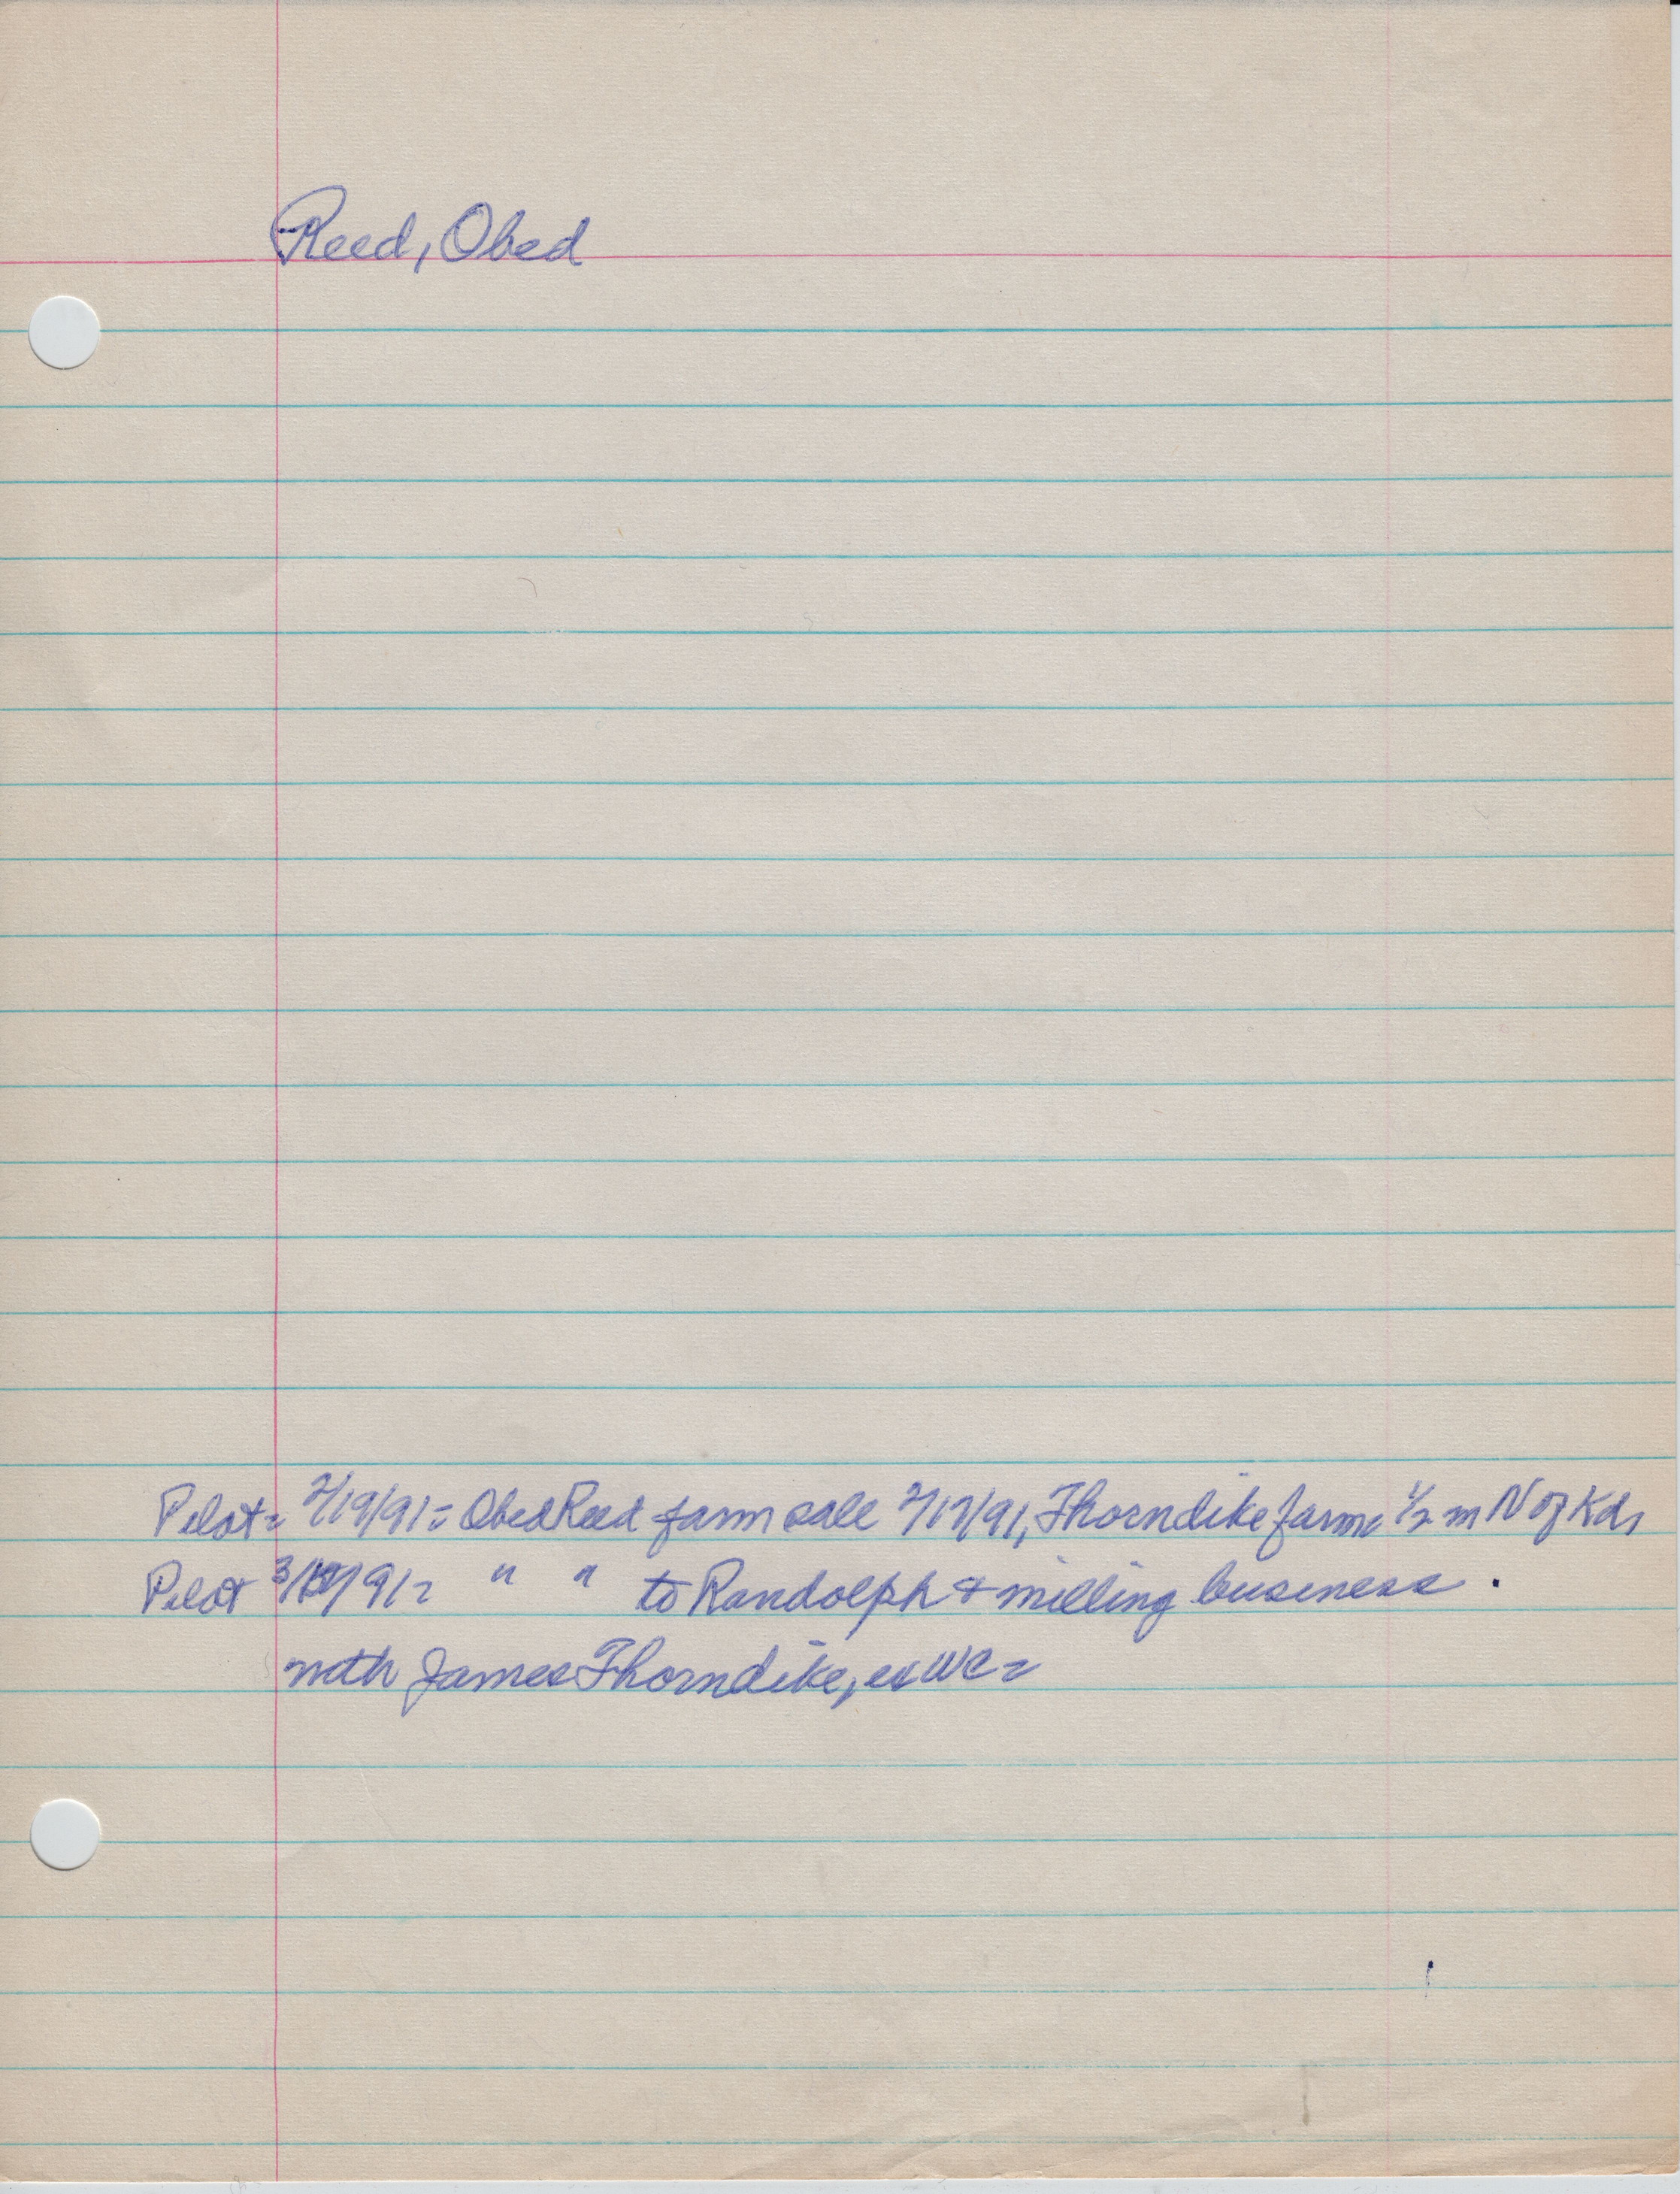 Reed, Obed
Pilot - 2/19/91 = Obed Reed farm sale 2/17/91, Thorndike farm 1/2 m N of Kd,
Pilot 3/ /91 = " " to Randolph & milling business.
with James Thorndike, ex WC =